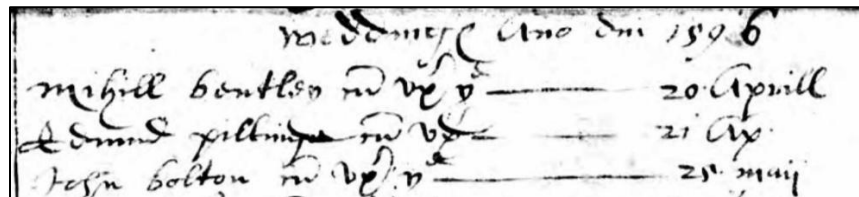 Weddings Ano dni 1596
Mihill bentley cu vx y 20 Aprill
Edmund pilling cu vx 21 Ap
John bolton cu vx y 25 maij